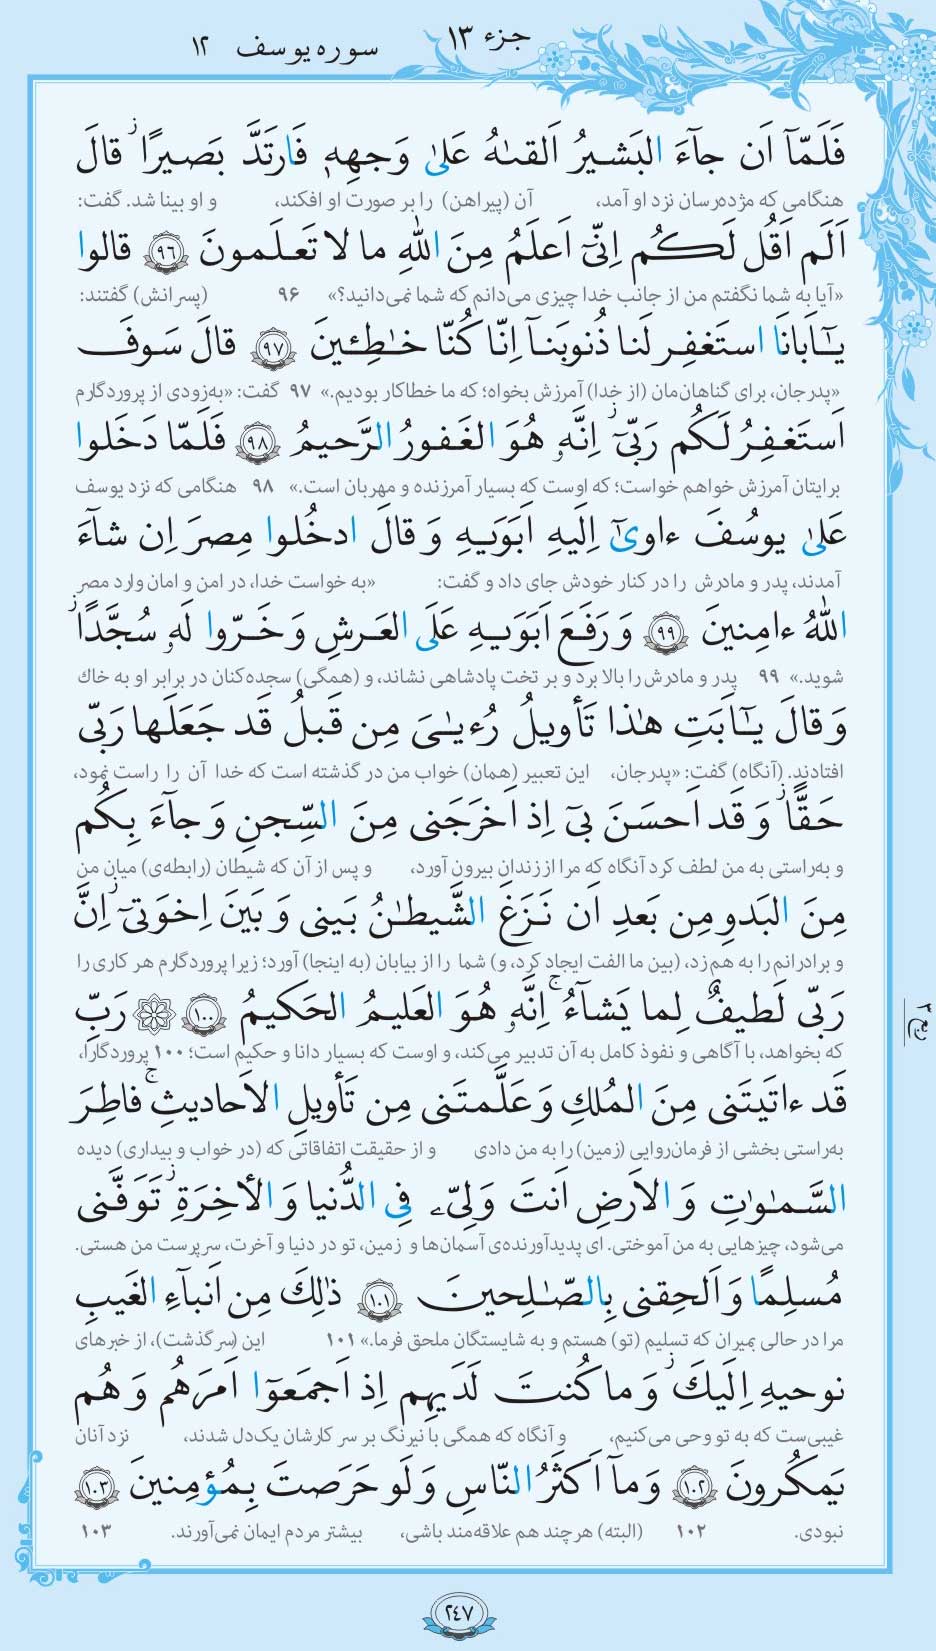 جزء ۱۳
سوره یوسف ۱۲
فَلَمّآ اَن جآءَ البَشیرُ اَلقىٰهُ عَلىٰ وَجهِهٖ فَارتَدَّ بَصیرًاۖ قالَ
هنگامی که مژده‌رسان نزد او آمد، آن (پیراهن) را بر صورت او افکند، و او بینا شد. گفت:
اَلَم اَقُل لَکُم اِنّیٓ اَعلَمُ مِنَ اللّٰهِ ما لا تَعلَمونَ ﴿۹۶﴾ قالوا
«آیا به شما نگفتم من از جانب خدا چیزی می‌دانم که شما نمی‌دانید؟» ۹۶ (پسرانش) گفتند:
یـٰٓاَبانَا استَغفِر لَنا ذُنوبَنآ اِنّا کُنّا خـٰطِـٔینَ ﴿۹۷﴾ قالَ سَوفَ
«پدرجان، برای گناهان‌مان (از خدا) آمرزش بخواه؛ که ما خطاکار بودیم.» ۹۷ گفت: «به‌زودی از پروردگارم
اَستَغفِرُ لَکُم رَبّیٓۖ اِنَّهٗ هُوَ الغَفورُ الرَّحیمُ ﴿۹۸﴾ فَلَمّا دَخَلوا
برایتان آمرزش خواهم خواست؛ که اوست که بسیار آمرزنده و مهربان است.» ۹۸ هنگامی که نزد یوسف
عَلىٰ یوسُفَ ءاوىٰٓ اِلَیهِ اَبَوَیهِ وَ قالَ ادخُلوا مِصرَ اِن شآءَ
آمدند، پدر و مادرش را در کنار خودش جای داد و گفت: «به خواست خدا، در امن و امان وارد مصر
اللّٰهُ ءامِنینَ ﴿۹۹﴾ وَ رَفَعَ اَبَوَیهِ عَلَى العَرشِ وَ خَرّوا لَهٗ سُجَّدًاۖ
شوید.» ۹۹ پدر و مادرش را بالا برد و بر تخت پادشاهی نشاند، و (همگی) سجده‌کنان در برابر او به خاک
وَ قالَ یـٰٓاَبَتِ هـٰذا تَأویلُ رُءیـٰیَ مِن قَبلُ قَد جَعَلَها رَبّی
افتادند. (آنگاه) گفت: «پدرجان، این تعبیر (همان) خواب من در گذشته است که خدا آن را راست نمود،
حَقًّاۖ وَ قَد اَحسَنَ بیٓ اِذ اَخرَجَنی مِنَ السِّجنِ وَ جآءَ بِکُم
و به‌راستی به من لطف کرد آنگاه که مرا از زندان بیرون آورد، و پس از آن که شیطان (رابطه‌ی) میان من
مِنَ البَدوِ مِن بَعدِ اَن نَزَغَ الشَّیطـٰنُ بَینی وَ بَینَ اِخوَتیٓۚ اِنَّ
و برادرانم را به هم زد، (بین ما الفت ایجاد کرد، و) شما را از بیابان (به اینجا) آورد؛ زیرا پروردگارم هر کاری را
رَبّی لَطیفٌ لِما یَشآءُۚ اِنَّهٗ هُوَ العَلیمُ الحَکیمُ ﴿۱۰۰﴾ رَبِّ
که بخواهد، با آگاهی و نفوذ کامل به آن تدبیر می‌کند، و اوست که بسیار دانا و حکیم است؛ ۱۰۰ پروردگارا،
قَد ءاتَیتَنی مِنَ المُلکِ وَ عَلَّمتَنی مِن تَأویلِ الاَحادیثِۚ فاطِرَ
به‌راستی بخشی از فرمان‌روایی (زمین) را به من دادی و از حقیقت اتفاقاتی که (در خواب و بیداری) دیده
السَّمـٰوٰتِ وَ الاَرضِ اَنتَ وَلِیّۦ فِی الدُّنیا وَ الاٰخِرَةِۖ تَوَفَّنی
می‌شود، چیزهایی به من آموختی. ای پدیدآورنده‌ی آسمان‌ها و زمین، تو در دنیا و آخرت، سرپرست من هستی.
مُسلِمًا وَ اَلحِقنی بِالصّـٰلِحینَ ﴿۱۰۱﴾ ذٰلِکَ مِن اَنبآءِ الغَیبِ
مرا در حالی بمیران که تسلیم (تو) هستم و به شایستگان ملحق فرما.» ۱۰۱ این (سرگذشت)، از خبرهای
نوحیهِ اِلَیکَۖ وَ ما کُنتَ لَدَیهِم اِذ اَجمَعوٓا اَمرَهُم وَ هُم
غیبی‌ست که به تو وحی می‌کنیم، و آنگاه که همگی با نیرنگ بر سر کارشان یک‌دل شدند، نزد آنان
یَمکُرونَ ﴿۱۰۲﴾ وَ مآ اَکثَرُ النّاسِ وَ لَو حَرَصتَ بِمُؤمِنینَ ﴿۱۰۳﴾
نبودی. ۱۰۲ (البته) هرچند هم علاقه‌مند باشی، بیشتر مردم ایمان نمی‌آورند. ۱۰۳
ربع ۳
۲۴۷